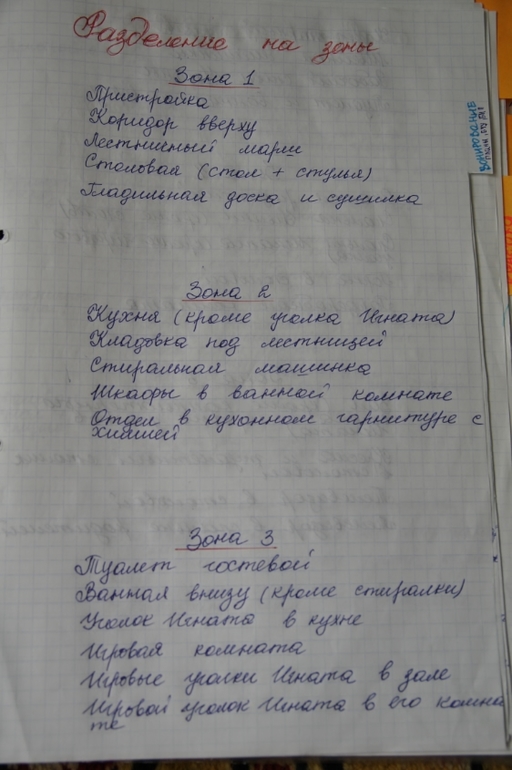 Разделение на зоны
Зона 1
Пристройка
Коридор вверху
Лестничный марш
Столовая (стол + стулья)
Гладильная доска и сушилка
Зона 2
Кухня (кроме уголка Игната)
Кладовка под лестницей
Стиральная машинка
Шкафы в ванной комнате
Отдел в кухонном гарнитуре с
химией
Зона 3
Туалет гостевой
Ванная внизу (кроме стиралки)
Уголок Игната в кухне
Игровая комната
Игровые уголки Игната в зале
Игровой уголок Игната в его комна
те
ЗОНИРОВАНИЕ